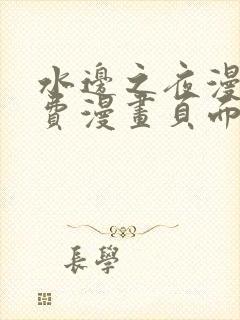 水邊之夜漫
費漫畫頁而
長學